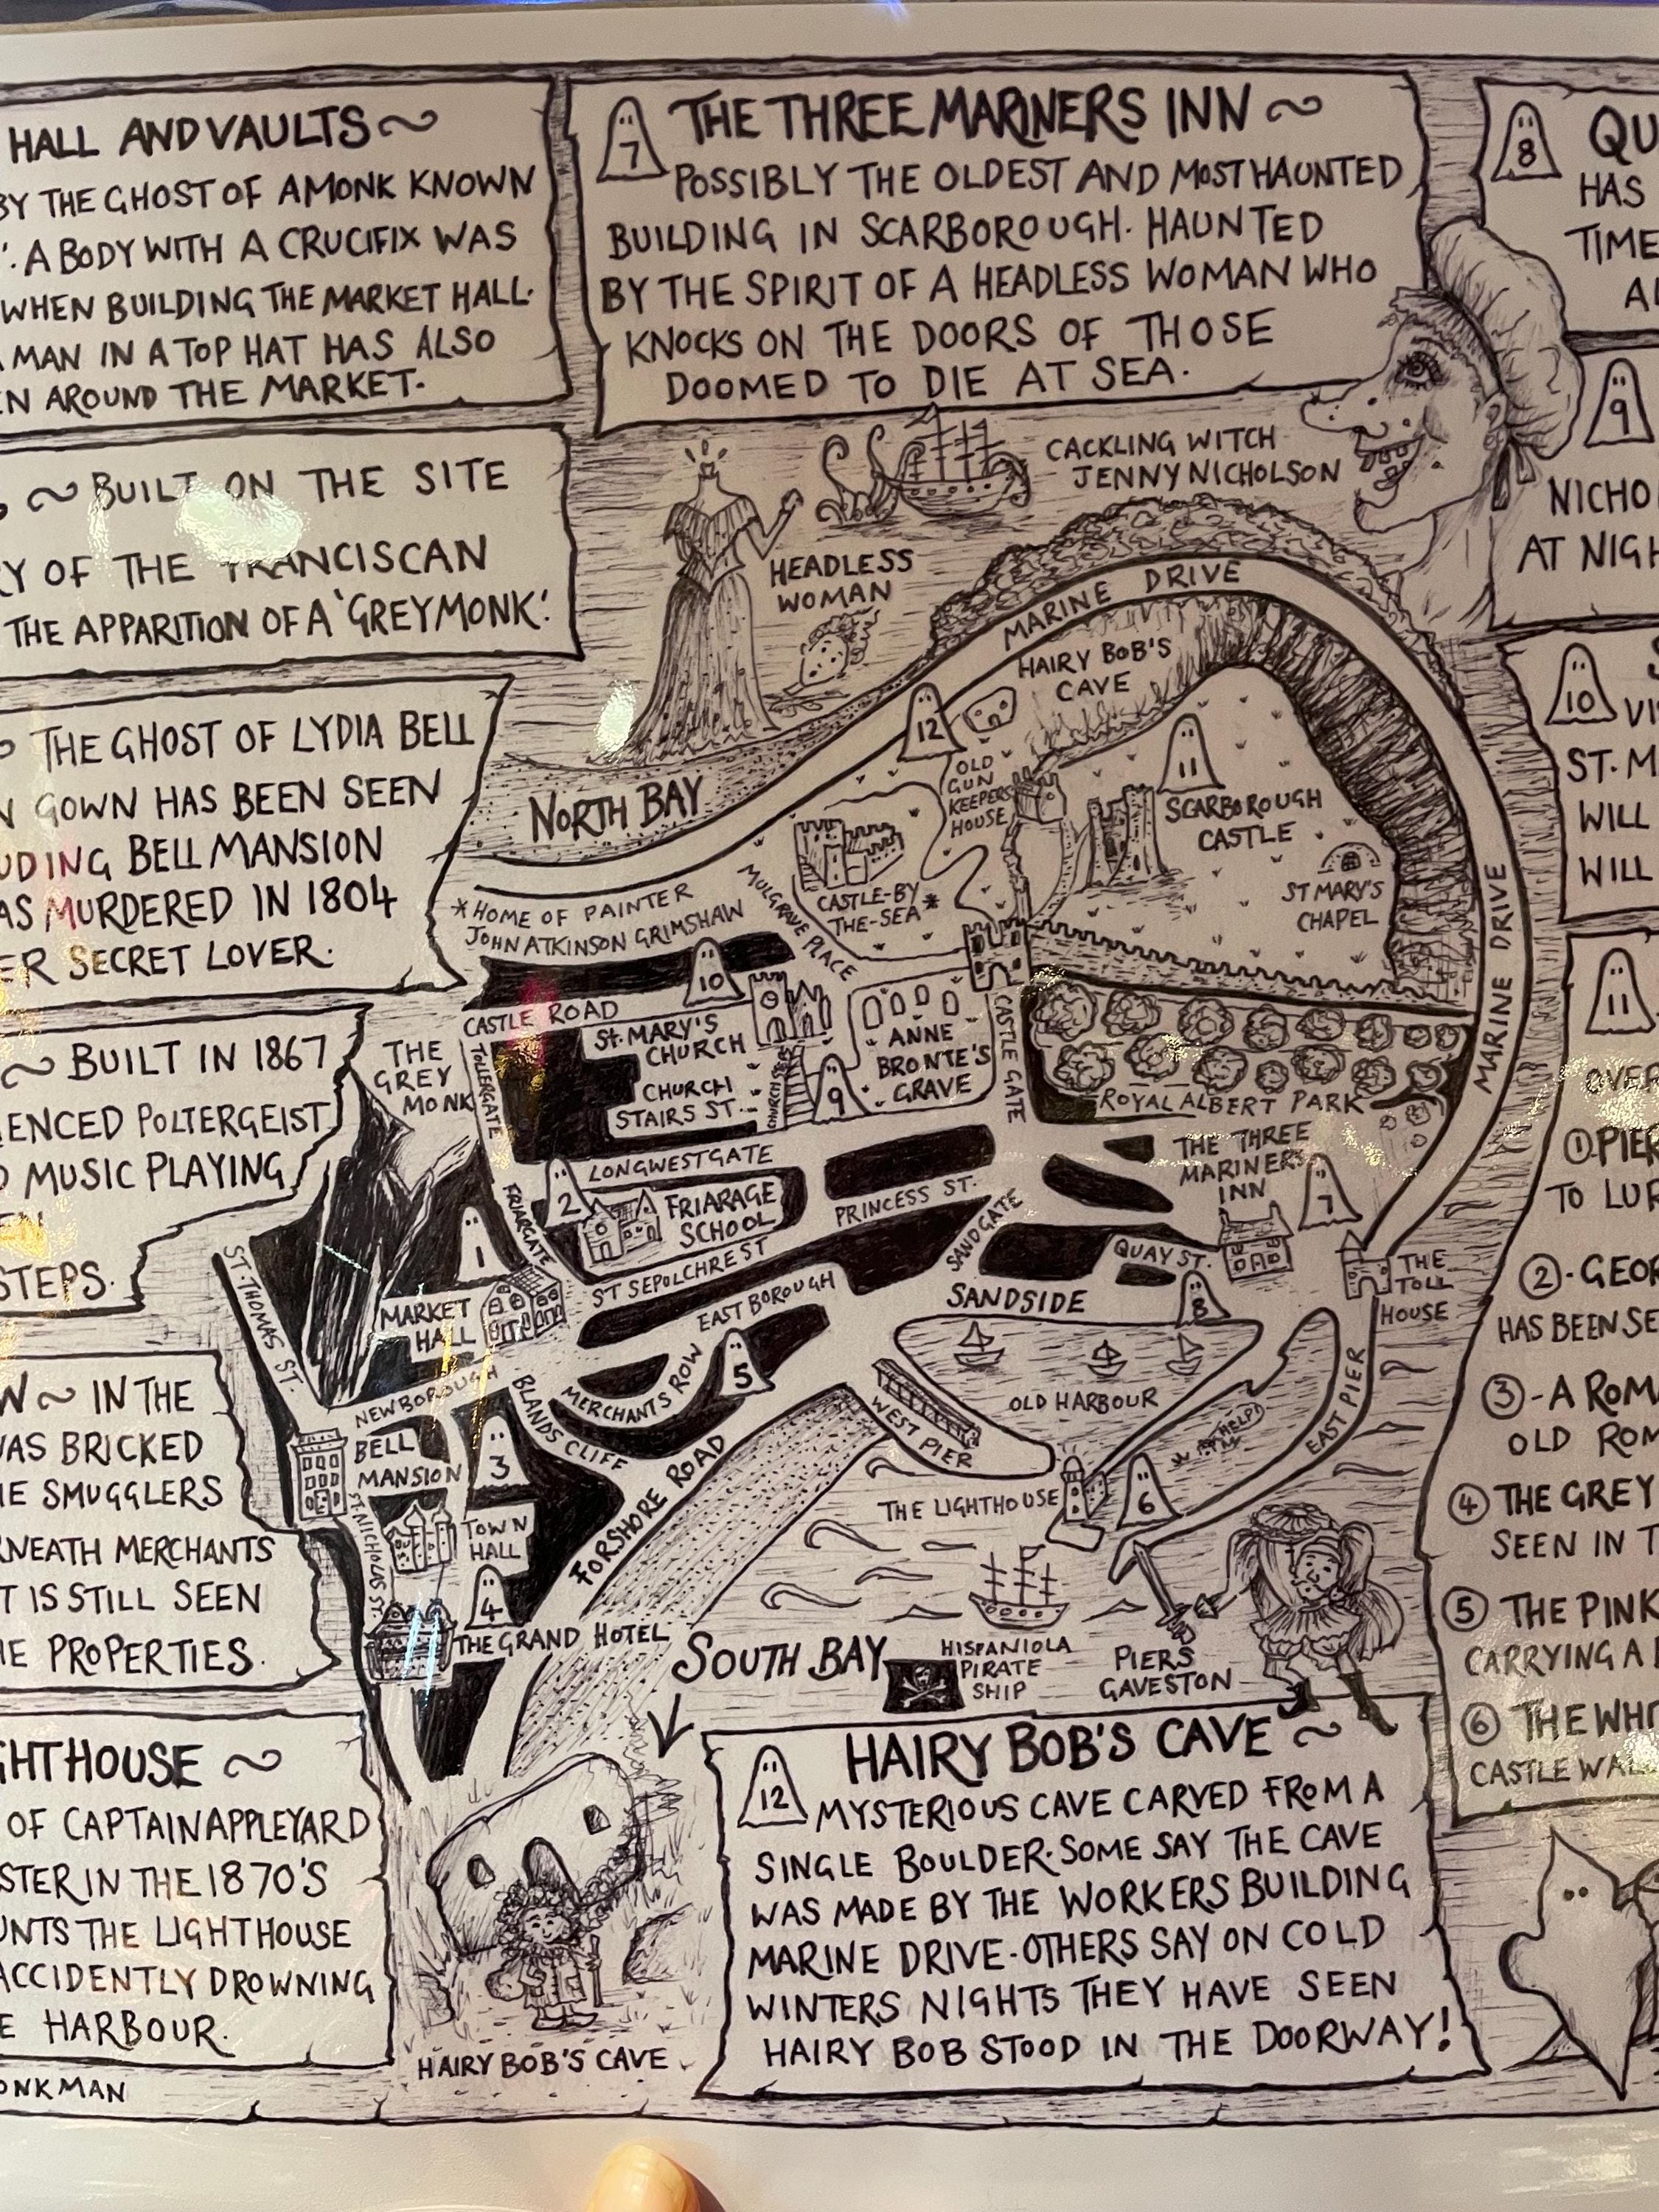 HALL AND VAULTS
BY THE GHOST OF A MONK KNOWN
'. A BODY WITH A CRUCIFIX WAS
WHEN BUILDING THE MARKET HALL.
MAN IN A TOP HAT HAS ALSO
AROUND THE MARKET.
BUILT ON THE SITE
OF THE FRANCISCAN
THE APPARITION OF A 'GREY MONK'.
THE GHOST OF LYDIA BELL
GOWN HAS BEEN SEEN
BELL MANSION
MURDERED IN 1804
SECRET LOVER.
BUILT IN 1867
POLTERGEIST
MUSIC PLAYING
STEPS.
IN THE
WAS BRICKED
SMUGGLERS
MERCHANTS
IS STILL SEEN
PROPERTIES.
OF CAPTAIN APPLEYARD
IN THE 1870'S
THE LIGHTHOUSE
ACCIDENTLY DROWNING
HARBOUR.
7
THE THREE MARINERS INN
POSSIBLY THE OLDEST AND MOST HAUNTED
BUILDING IN SCARBOROUGH. HAUNTED
BY THE SPIRIT OF A HEADLESS WOMAN WHO
KNOCKS ON THE DOORS OF THOSE
DOOMED TO DIE AT SEA.
CACKLING WITCH
JENNY NICHOLSON
HEADLESS
WOMAN
MARINE DRIVE
HAIRY BOB'S
CAVE
12
OLD
GUN
KEEPERS
HOUSE
11
SCARBOROUGH
CASTLE
ST MARY'S
CHAPEL
MARINE DRIVE
MARINE DRIVE
NORTH BAY
*HOME OF PAINTER
JOHN ATKINSON GRIMSHAW
MULGRAVE PLACE
CASTLE-BY
THE-SEA*
10
CASTLE ROAD
ST. MARY'S
CHURCH
CHURCH
STAIRS ST.
9
ANNE
BRONTE'S
GRAVE
CASTLE GATE
ROYAL ALBERT PARK
THE
GREY
MONK
TOLLERGATE
LONGWESTGATE
2
FRIARGATE
FRIARAGE
SCHOOL
PRINCESS ST.
THE THREE
MARINERS
INN
7
1
ST SEPOLCHREST
SANDGATE
QUAY ST.
THE
TOLL
HOUSE
ST. THOMAS ST.
MARKET
HALL
EASTBOROUGH
SANDSIDE
8
NEWBOROUGH
BLANDS CLIFF
MERCHANTS ROW
5
OLD HARBOUR
WEST PIER
EAST PIER
HELP!
BELL
MANSION
3
FORSHORE ROAD
THE LIGHTHOUSE
6
ST. NICHOLAS ST.
TOWN
HALL
4
THE GRAND HOTEL
SOUTH BAY
HISPANIOLA
PIRATE
SHIP
PIERS
GAVESTON
HAIRY BOB'S CAVE
12
HAIRY BOB'S CAVE
MYSTERIOUS CAVE CARVED FROM A
SINGLE BOULDER. SOME SAY THE CAVE
WAS MADE BY THE WORKERS BUILDING
MARINE DRIVE - OTHERS SAY ON COLD
WINTERS NIGHTS THEY HAVE SEEN
HAIRY BOB STOOD IN THE DOORWAY!
8
HAS
TIME
9
AT
10
ST. M
WILL
WILL
11
OVER
①
TO
②
HAS BEEN
③ - A
OLD
④ THE GREY
SEEN IN
⑤ THE PINK
CARRYING A
⑥ THE
CASTLE